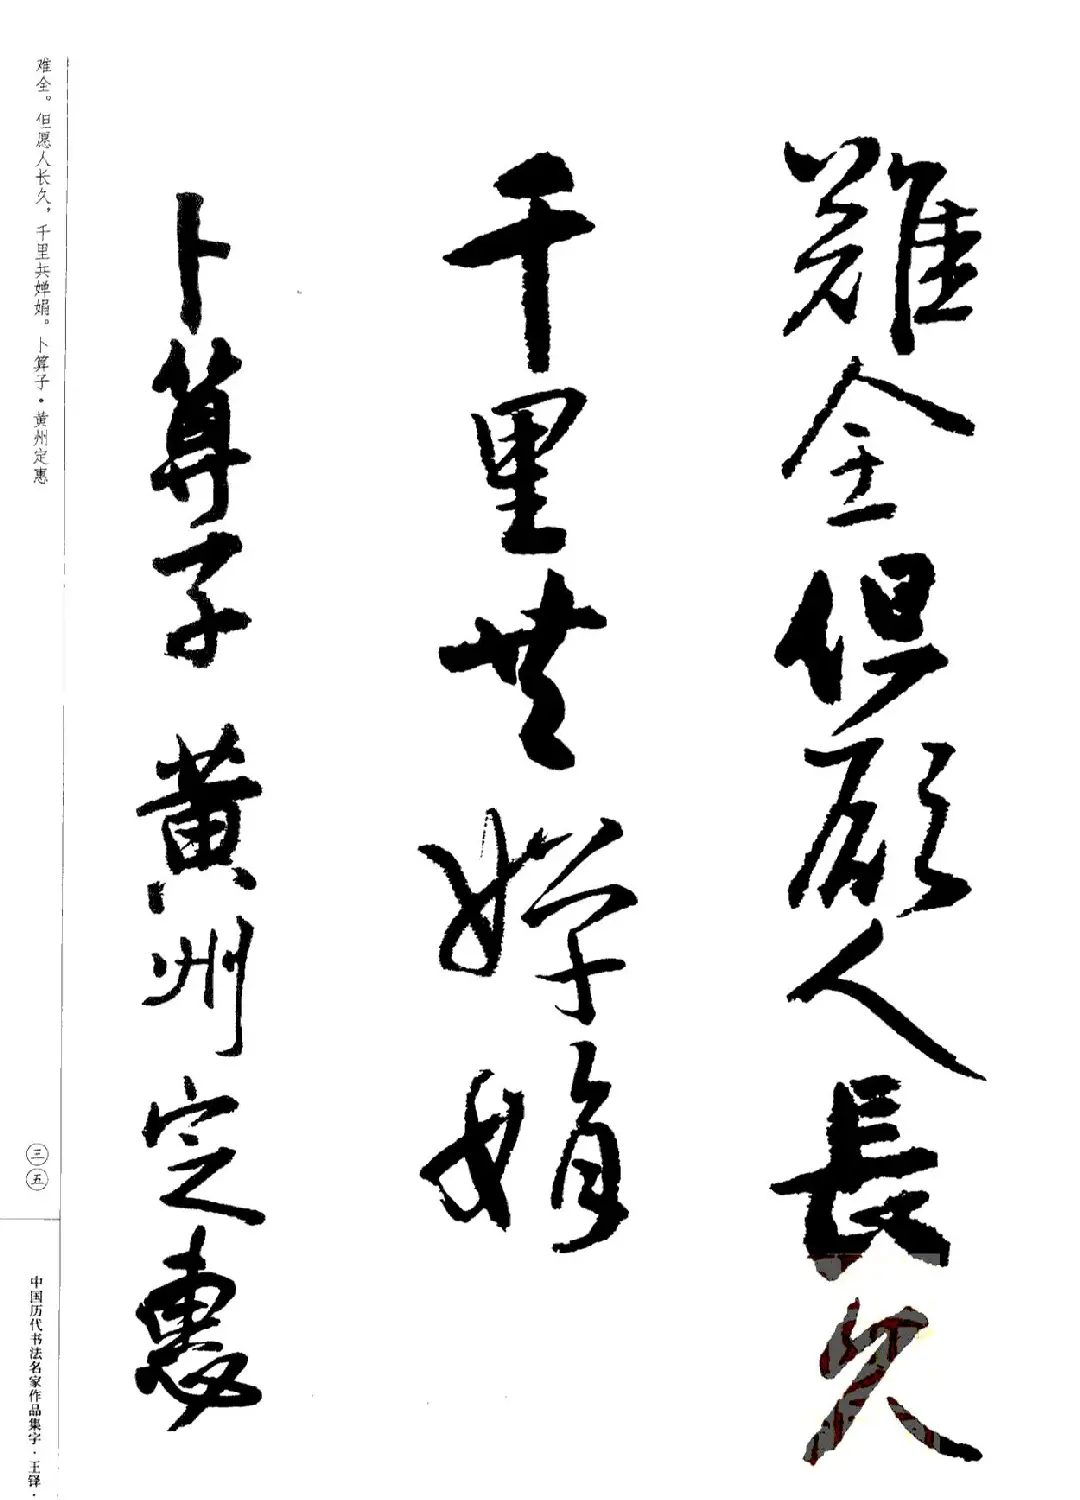 難全但願人長久
千里共嬋娟
卜算子 黄州定惠
难全。但愿人长久，千里共婵娟。卜算子·黄州定惠
三五
中国历代书法名家作品集字·王铎·